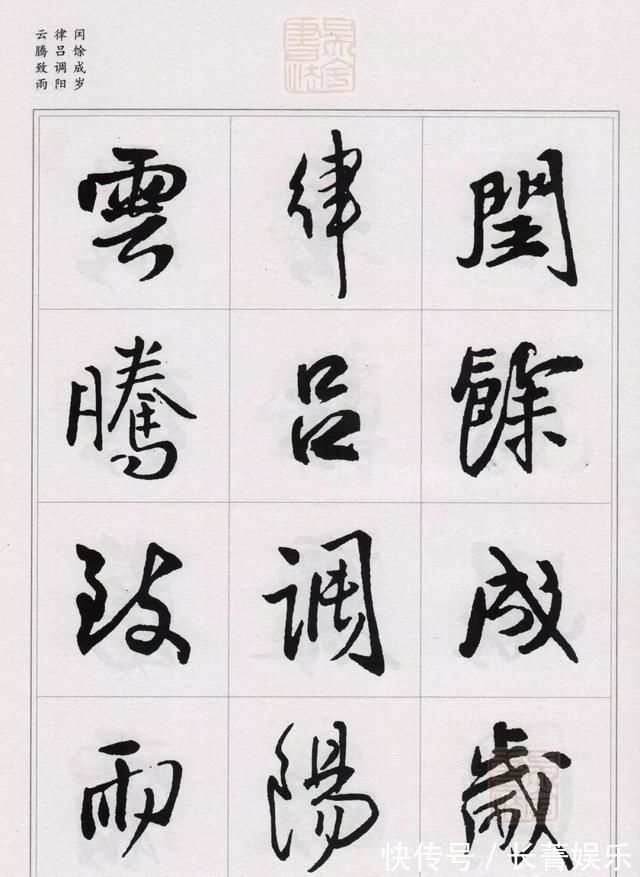 闰馀成岁
律吕调阳
云腾致雨
閏餘成歲
律吕調陽
雲騰致雨
快传号/长菁娱乐